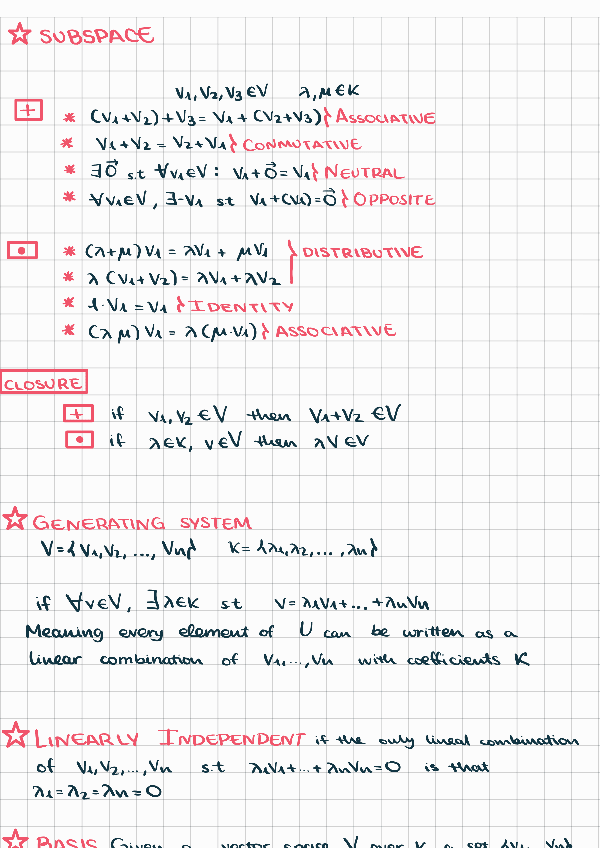 ☆ SUBSPACE
V₁, V₂, V₃ ∈ V λ, μ ∈ K
+ * (V₁+V₂)+V₃ = V₁+(V₂+V₃)} ASSOCIATIVE
* V₁+V₂ = V₂+V₁} CONMUTATIVE
* ∃ 0⃗ s.t ∀v₁∈V : V₁+0⃗ = V₁} NEUTRAL
* ∀v₁∈V, ∃-V₁ st V₁+(V₁)=0⃗} OPPOSITE
• * (λ+μ)V₁ = λV₁ + μV₁ } DISTRIBUTIVE
* λ(V₁+V₂) = λV₁+λV₂
* 1·V₁ = V₁} IDENTITY
* (λμ)V₁ = λ(μ·V₁)} ASSOCIATIVE
CLOSURE
+ if V₁, V₂ ∈ V then V₁+V₂ ∈ V
• if λ∈K, v∈V then λV∈V
☆ GENERATING SYSTEM
V={V₁,V₂, ..., Vn} K={λ₁,λ₂,...,λn}
if ∀v∈V, ∃λ∈K st V=λ₁V₁+...+λnVn
Meaning every element of U can be written as a
linear combination of V₁,...,Vn with coefficients K
☆ LINEARLY INDEPENDENT if the only lineal combination
of V₁,V₂,...,Vn s.t λ₁V₁+...+λnVn=0 is that
λ₁=λ₂=λn=0
☆ BASIS Given a vector space V over K a set {V₁, Vn}